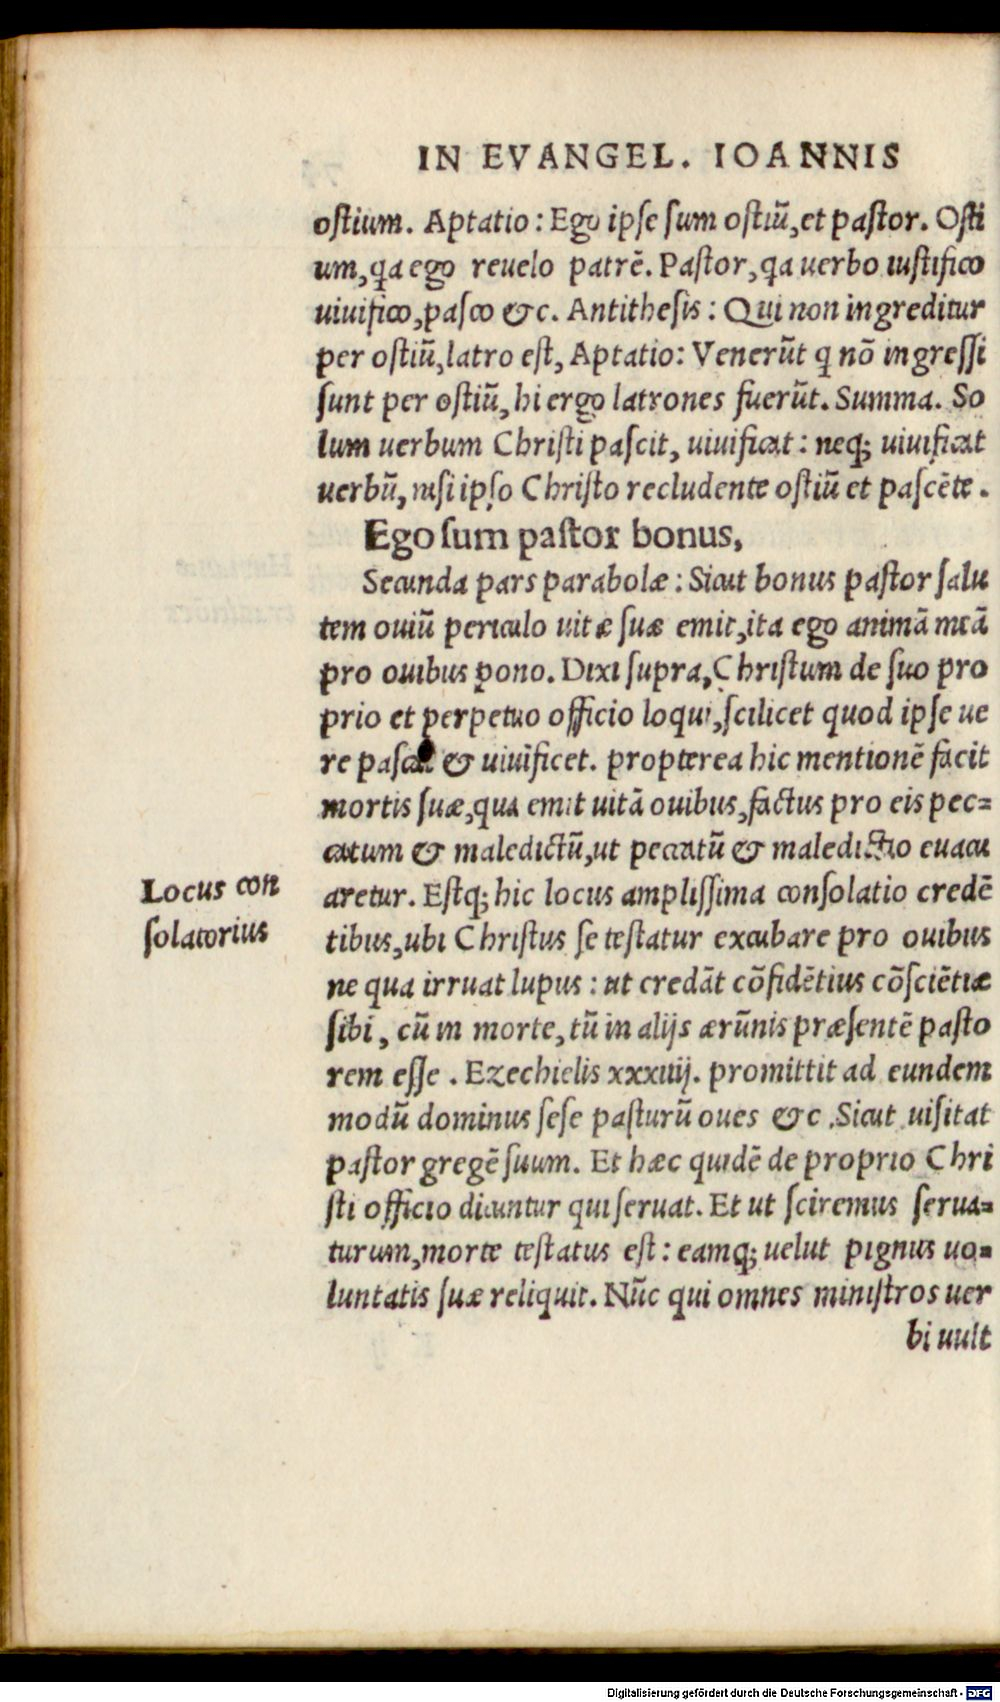 IN EVANGEL. IOANNIS
oſtium. Aptatio: Ego ipſe ſum oſtiũ, et paſtor. Oſti
um, qa ego reuelo patrẽ. Paſtor, qa uerbo iuſtifico
uiuifico, paſco &c. Antitheſis: Qui non ingreditur
per oſtiũ, latro eſt, Aptatio: Venerũt q nõ ingreſſi
ſunt per oſtiũ, hi ergo latrones fuerũt. Summa. So
lum uerbum Chriſti paſcit, uiuificat: neq; uiuificat
uerbũ, niſi ipſo Chriſto recludente oſtiũ et paſcẽte.
Ego ſum paſtor bonus,
Secunda pars parabolæ: Sicut bonus paſtor ſalu
tem ouiũ periculo uitæ ſuæ emit, ita ego animã meã
pro ouibus pono. Dixi ſupra, Chriſtum de ſuo pro
prio et perpetuo officio loqui, ſcilicet quod ipſe ue
re paſcat & uiuificet. propterea hic mentionẽ facit
mortis ſuæ, qua emit uitã ouibus, factus pro eis pec=
catum & maledictũ, ut peccatũ & maledictio euacu
aretur. Eſtq; hic locus ampliſſima conſolatio credẽ
Locus con
ſolatorius
tibus, ubi Chriſtus ſe teſtatur excubare pro ouibus
ne qua irruat lupus: ut credãt cõfidẽtius cõſciẽtiæ
ſibi, cũ in morte, tũ in alijs ærũnis præſentẽ paſto
rem eſſe. Ezechielis xxxiiij. promittit ad eundem
modũ dominus ſeſe paſturũ oues &c. Sicut uiſitat
paſtor gregẽ ſuum. Et hæc quidẽ de proprio Chri
ſti officio dicuntur qui ſeruat. Et ut ſciremus ſerua=
turum, morte teſtatus eſt: eamq; uelut pignus uo=
luntatis ſuæ reliquit. Nũc qui omnes miniſtros uer
bi uult
Digitalisierung gefördert durch die Deutsche Forschungsgemeinschaft - DFG